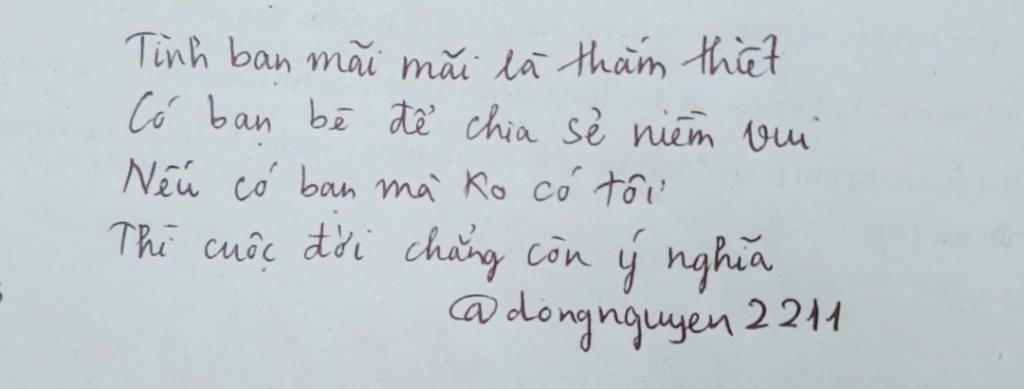 Tình bạn mãi mãi là thắm thiết
Có bạn bè để chia sẻ niềm vui
Nếu có bạn mà ko có tôi
Thì cuộc đời chẳng còn ý nghĩa
@dongnguyen2211